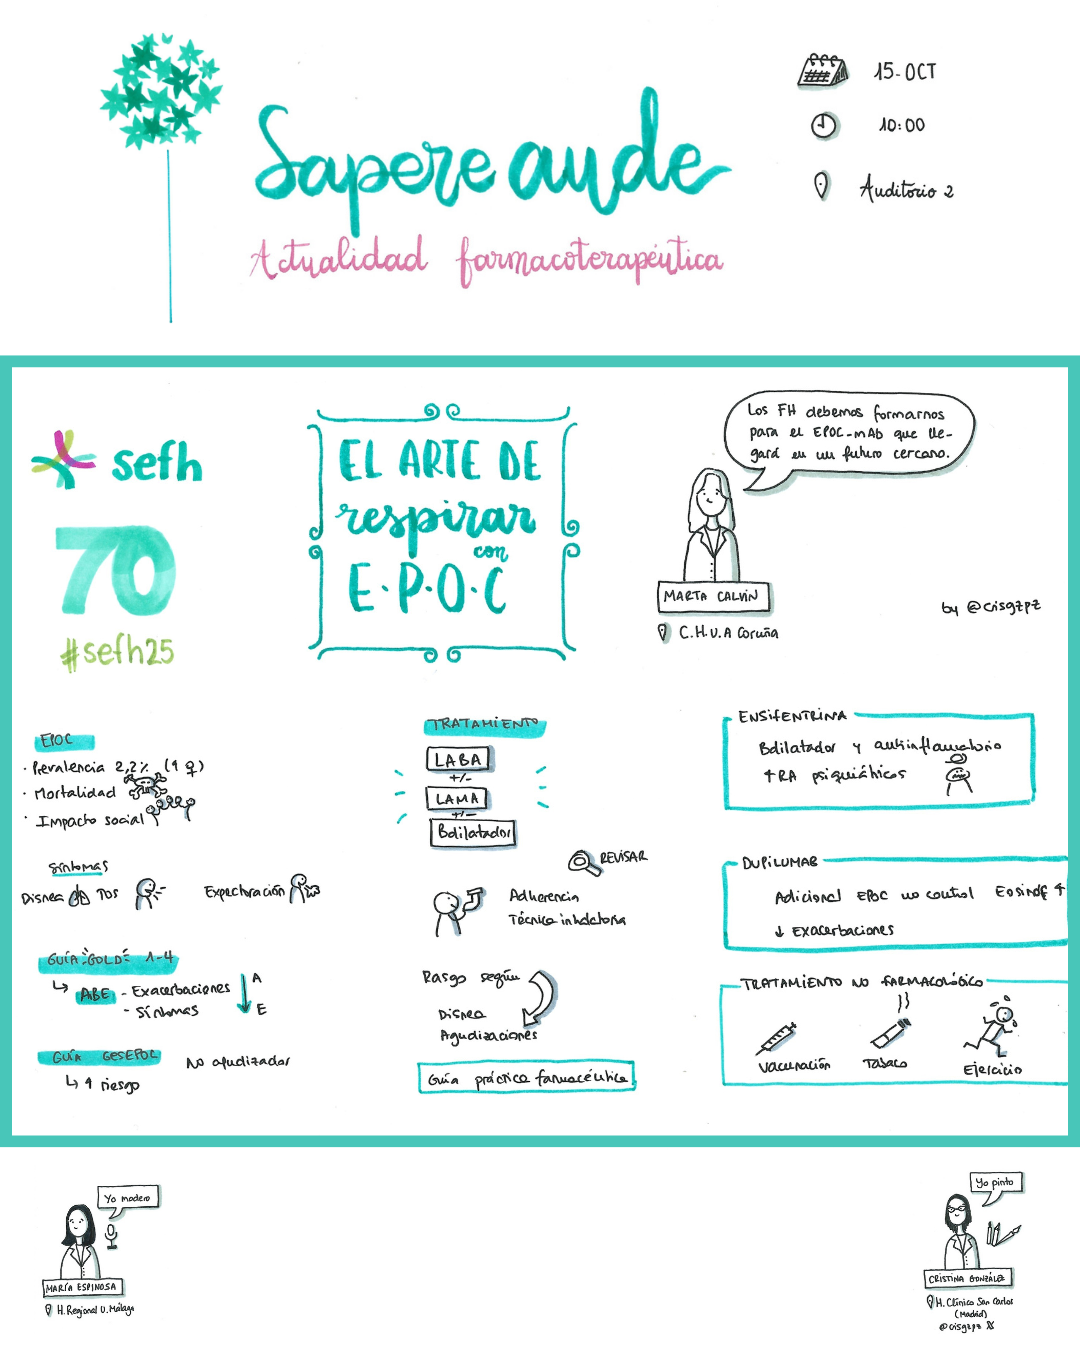 Sapere aude
Actualidad farmacoterapéutica
15-OCT
10:00
Auditorio 2
sefh
70
#sefh25
EL ARTE DE
respirar
con
E·P·O·C
Los FH debemos formarnos
para el EPOC-mAb que lle-
gará en un futuro cercano.
MARTA CALVIN
C.H.U.A Coruña
by @crisgzpz
EPOC
· Prevalencia 2,2% (↑ ♀)
· Mortalidad
· Impacto social
Síntomas
Disnea
Tos
Expectoración
GUÍA GOLD 1-4
↳ ABE - Exacerbaciones
- Síntomas
A
E
GUÍA GESEPOC
↳ ↑ riesgo
No agudizador
TRATAMIENTO
LABA
+/-
LAMA
+/-
Bdilatador
REVISAR
Adherencia
Técnica inhalatoria
Rasgo según
Disnea
Agudizaciones
Guía práctica farmacéutica
ENSIFENTRINA
Bdilatador y antiinflamatorio
↑RA psiquiátricos
DUPILUMAB
Adicional EPOC no control Eosinóf ↑
↓ Exacerbaciones
TRATAMIENTO NO FARMACOLÓGICO
Vacunación
Tabaco
Ejercicio
Yo modero
MARÍA ESPINOSA
H. Regional U. Málaga
Yo pinto
CRISTINA GONZÁLEZ
H. Clínico San Carlos
(Madrid)
@crisgzpz X